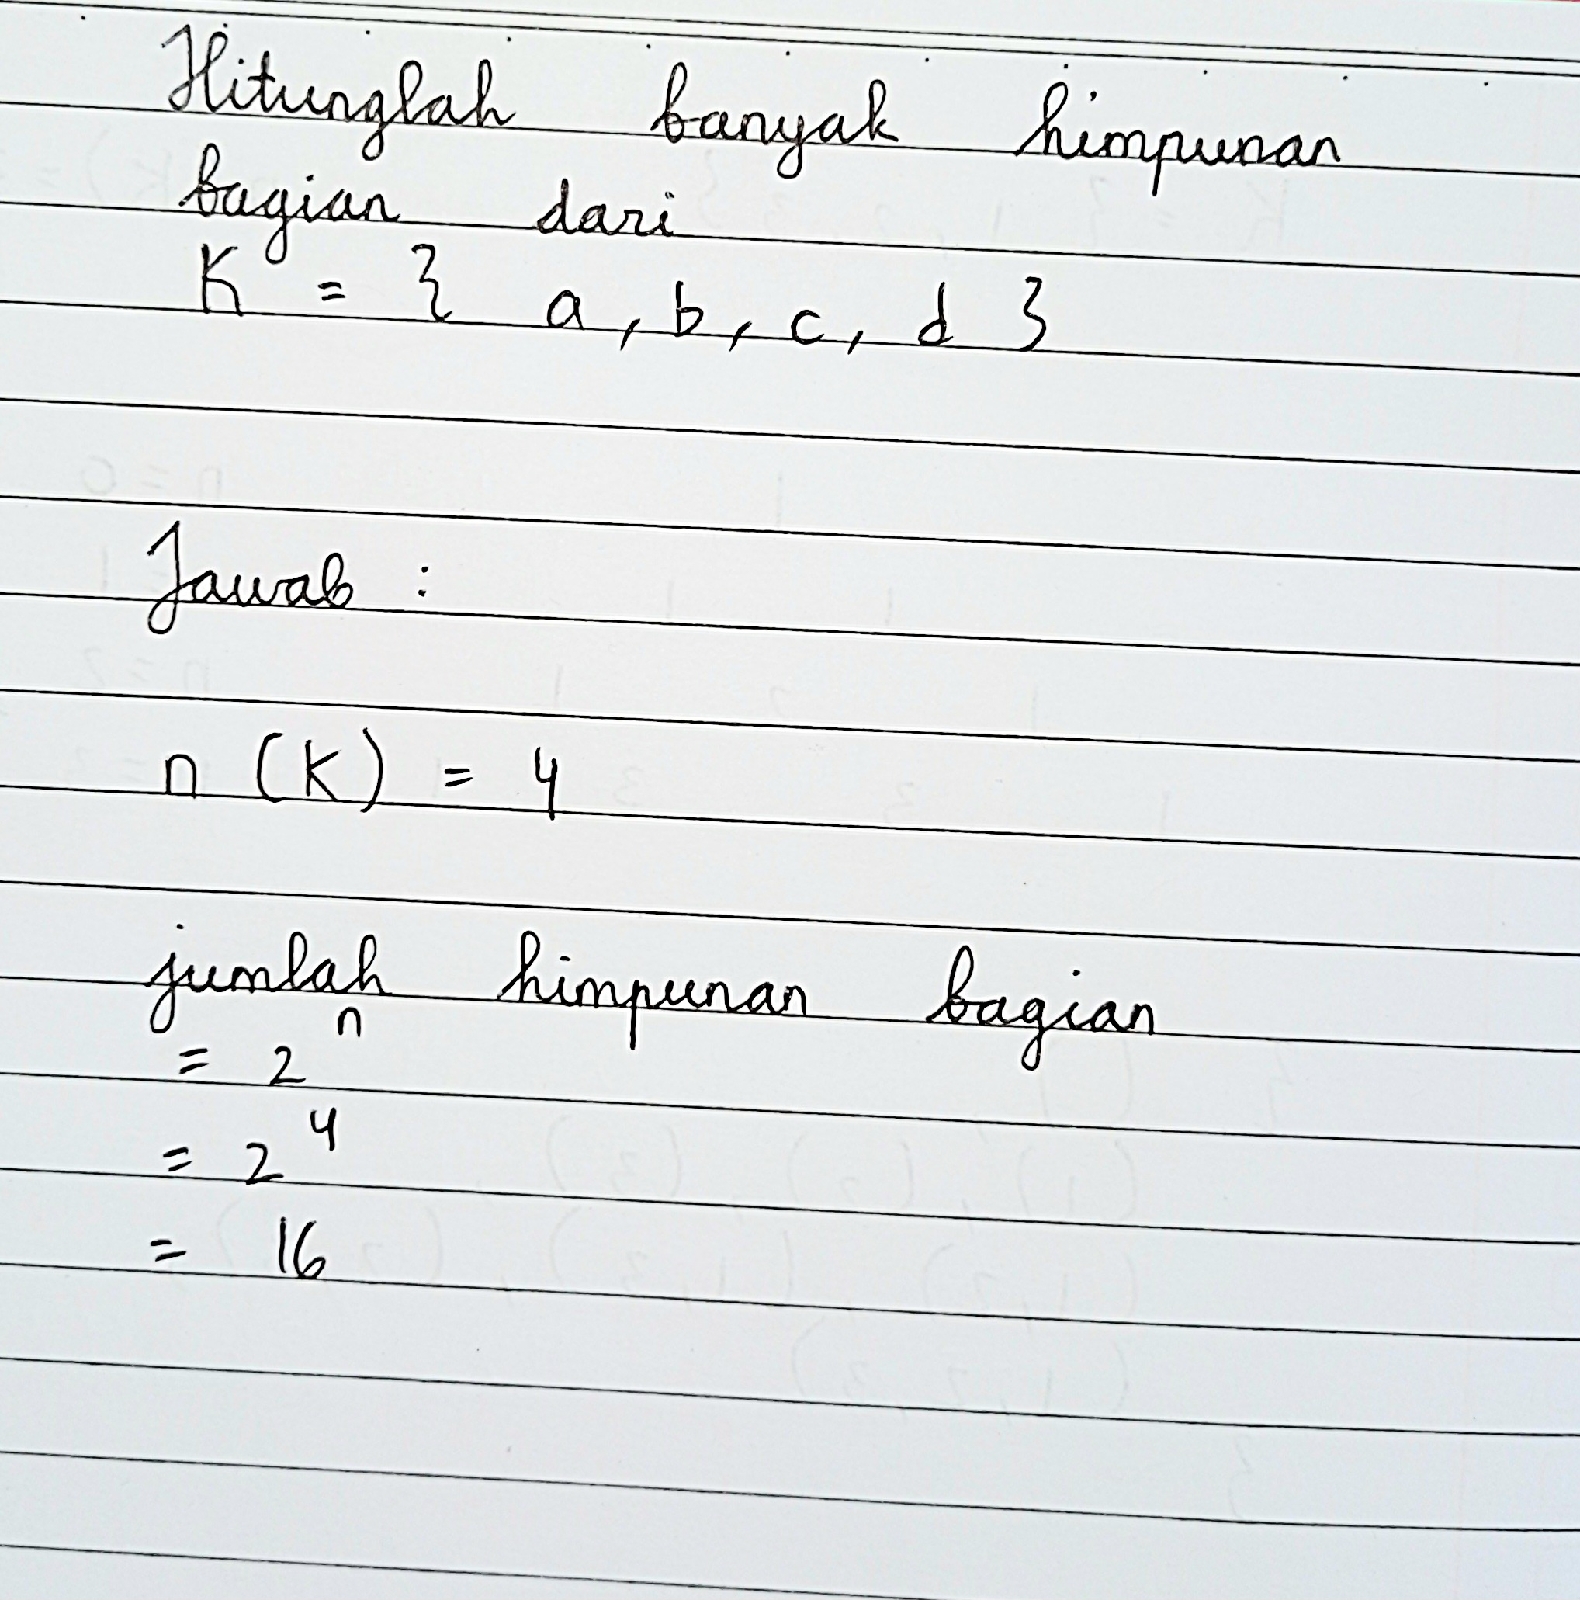 Hitunglah banyak himpunan
bagian dari
K = { a, b, c, d }
Jawab :
n (K) = 4
jumlah himpunan bagian
= 2ⁿ
= 2⁴
= 16